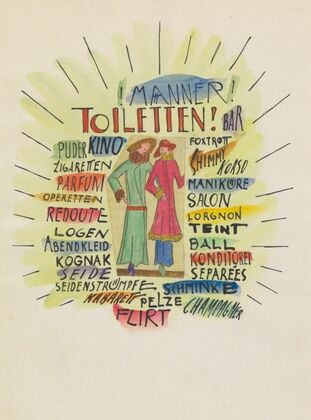 ! MÄNNER!
TOILETTEN!
BAR
PUDER
KINO
ZIGARETTEN
PARFUM
OPERETTEN
REDOUTE
LOGEN
ABENDKLEID
KOGNAK
SEIDE
SEIDENSTRÜMPFE
KABARETT
FOXTROTT
SHIMMI
KORSO
MANIKÜRE
SALON
LORGNON
TEINT
BALL
KONDITOREI
SEPAREES
SCHMINKE
PELZE
CHAMPAGNER
FLIRT